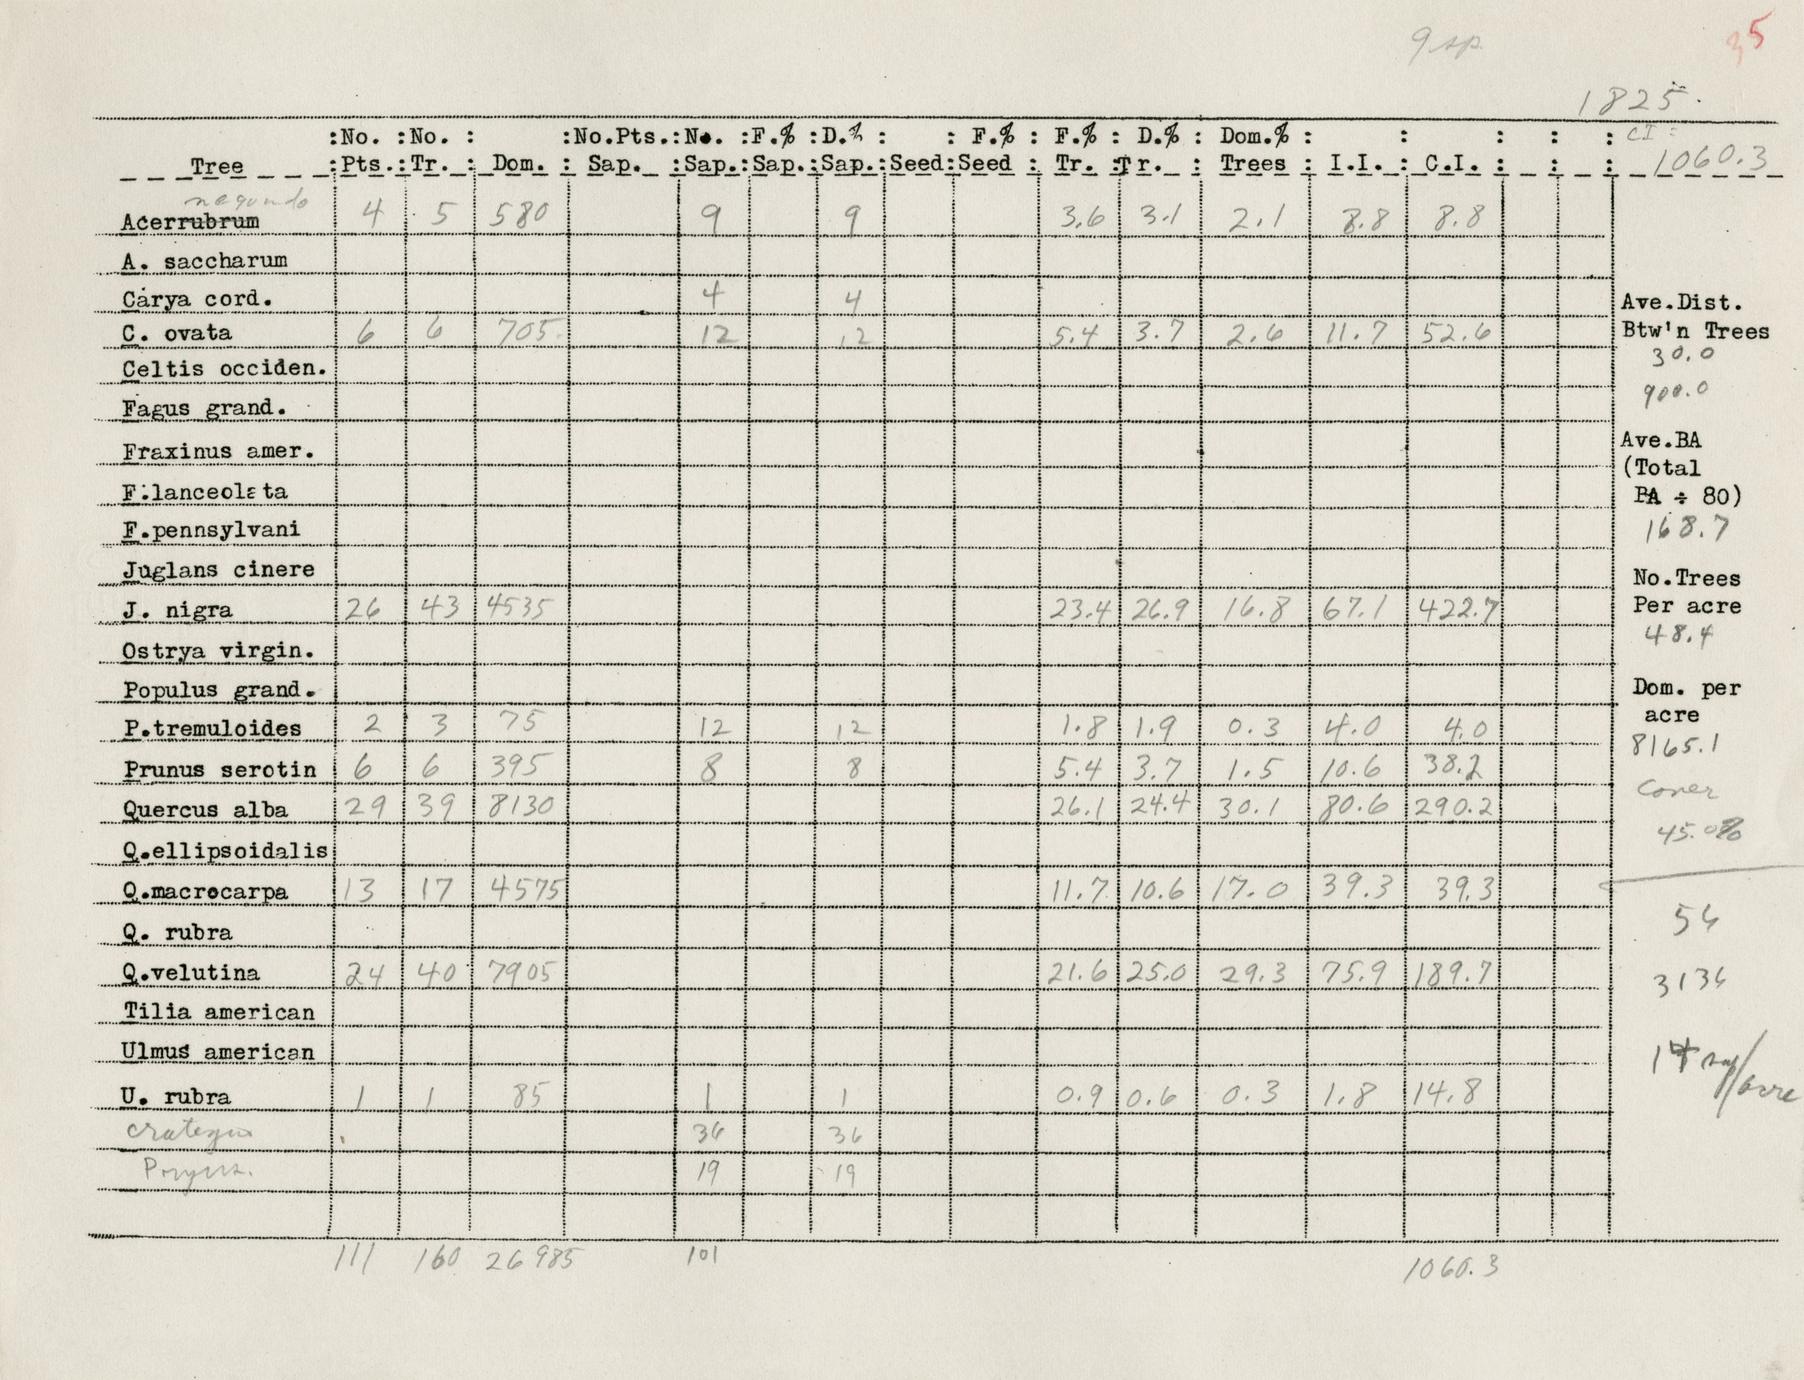 9 sp.
35
1825.
:No. :No. : :No.Pts.:No. :F.% :D.% : : F.% : F.% : D.% : Dom.% : : : : : CI =
Tree :Pts.:Tr. : Dom. : Sap. :Sap.:Sap.:Sap.:Seed:Seed : Tr. :Tr. : Trees : I.I. : C.I. : : : 1060.3
negundo
Acer rubrum 4 5 580 9 9 3.6 3.1 2.1 8.8 8.8
A. saccharum
Carya cord. 4 4
Ave.Dist.
C. ovata 6 6 705. 12 12 5.4 3.7 2.6 11.7 52.6
Btw'n Trees
30.0
Celtis occiden.
900.0
Fagus grand.
Ave.BA
Fraxinus amer.
(Total
F.lanceolata
BA ÷ 80)
F.pennsylvani
168.7
Juglans cinere
No.Trees
J. nigra 26 43 4535 23.4 26.9 16.8 67.1 422.7
Per acre
48.4
Ostrya virgin.
Populus grand.
Dom. per
acre
P.tremuloides 2 3 75 12 12 1.8 1.9 0.3 4.0 4.0
8165.1
Prunus serotin 6 6 395 8 8 5.4 3.7 1.5 10.6 38.2
cover
Quercus alba 29 39 8130 26.1 24.4 30.1 80.6 290.2
45.0%
Q.ellipsoidalis
Q.macrocarpa 13 17 4575 11.7 10.6 17.0 39.3 39.3
56
Q. rubra
Q.velutina 24 40 7905 21.6 25.0 29.3 75.9 189.7
3136
Tilia american
Ulmus american
14 /acre
U. rubra 1 1 85 1 1 0.9 0.6 0.3 1.8 14.8
Crategus 36 36
Pyrus. 19 19
111 160 26985 101 1060.3